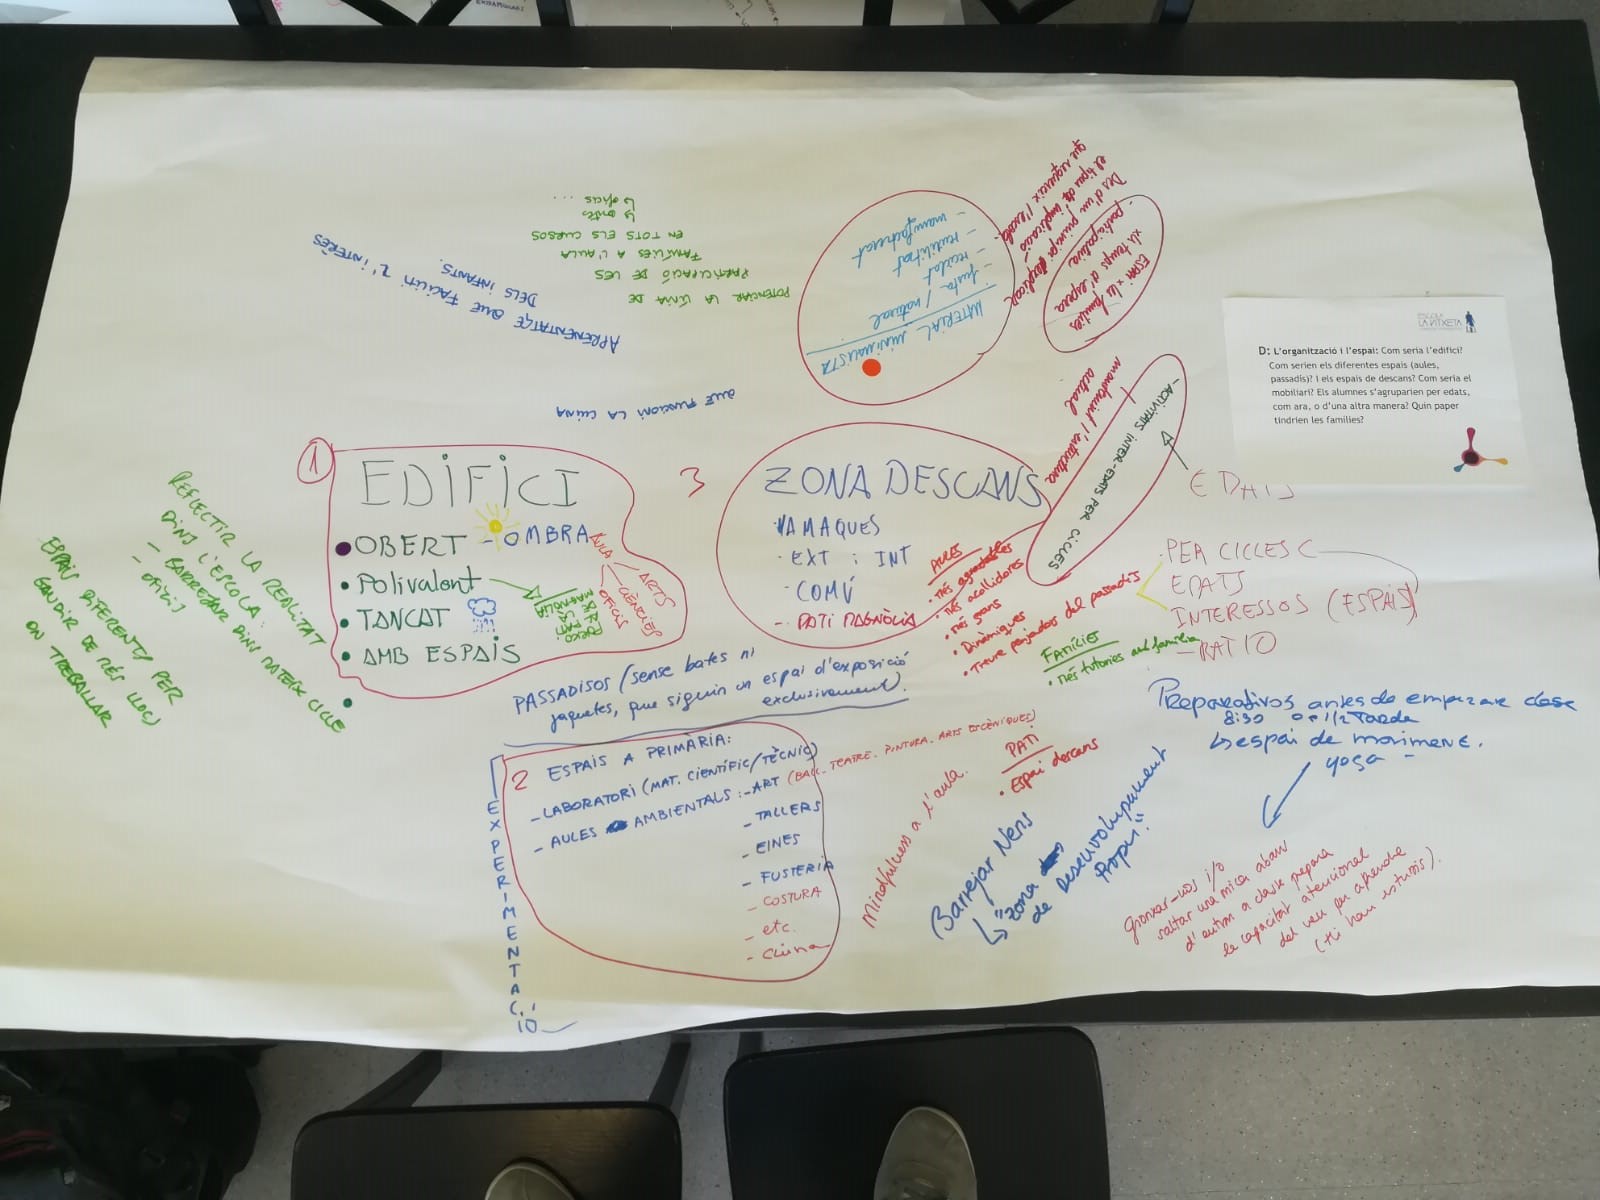 ESCOLA
LA VITXETA
D: L'organització i l'espai: Com seria l'edifici?
Com serien els diferentes espais (aules,
passadís)? I els espais de descans? Com seria el
mobiliari? Els alumnes s'agruparien per edats,
com ara, o d'una altra manera? Quin paper
tindrien les famílies?
APRENENTATGE QUE FACILITI L'INTERÈS
DELS INFANTS.
POTENCIAR LA LÍNIA DE
PARTICIPACIÓ DE LES
FAMÍLIES A L'AULA
EN TOTS ELS CURSOS
↳ oficis
...
QUE FUNCIONI LA CUINA
MATERIAL MINIMALISTA
- fusta / natural
- reciclat
- reutilitzat
- manufacturat
ESPAI x les famílies
x la temps d'espera
participativa
Des d'un principi explicar
el tipus d'implicació
que requereix l'escola.
- ACTIVITATS INTER-EDATS PER CICLES
mantenint l'estructura
actual
EDATS
1
EDIFICI
• OBERT - OMBRA
• Polivalent
• TANCAT
• AMB ESPAIS
AULA
ARTS
CIÈNCIES
OFICIS
PATI
MAGNOLIA
3
ZONA DESCANS
HAMAQUES
- EXT i INT
- COMÚ
- PATI MAGNÒLIA
AULES
• Més agradables
• Més acollidores
• Més grans
• Dinàmiques
• Treure penjadors del passadís
FAMÍLIES
• Més tutories amb família
PER CICLES
EDATS
INTERESSOS (ESPAIS)
- RATIO
REFLECTIR LA REALITAT
DINS L'ESCOLA:
- BARREJAR DINS MATEIX CICLE
- OFICIS
ESPAIS DIFERENTS PER
GAUDIR DE MÉS LLOCS
ON TREBALLAR
PASSADISOS (sense bates ni
jaquetes, que siguin un espai d'exposició
exclusivament).
2 ESPAIS A PRIMÀRIA:
- LABORATORI (MAT. CIENTÍFIC/TÈCNIC)
- AULES AMBIENTALS: - ART (BALL, TEATRE, PINTURA, ARTS ESCÈNIQUES)
- TALLERS
- EINES
- FUSTERIA
- COSTURA
- etc.
- Cuina
EXPERIMENTACIÓ
Mindfulness a l'aula.
PATI
• Espai descans
Barrejar Nens
↳ "Zona
de Desenvolupament
Propi."
Preparativos antes de empezar clase
8:30 o 1/2 Tarda
↳ espai de moviment.
yoga -
Gronxar-nos i/o
saltar una mica abans
d'entrar a classe prepara
la capacitat atencional
del nen per aprendre
(Hi han estudis).